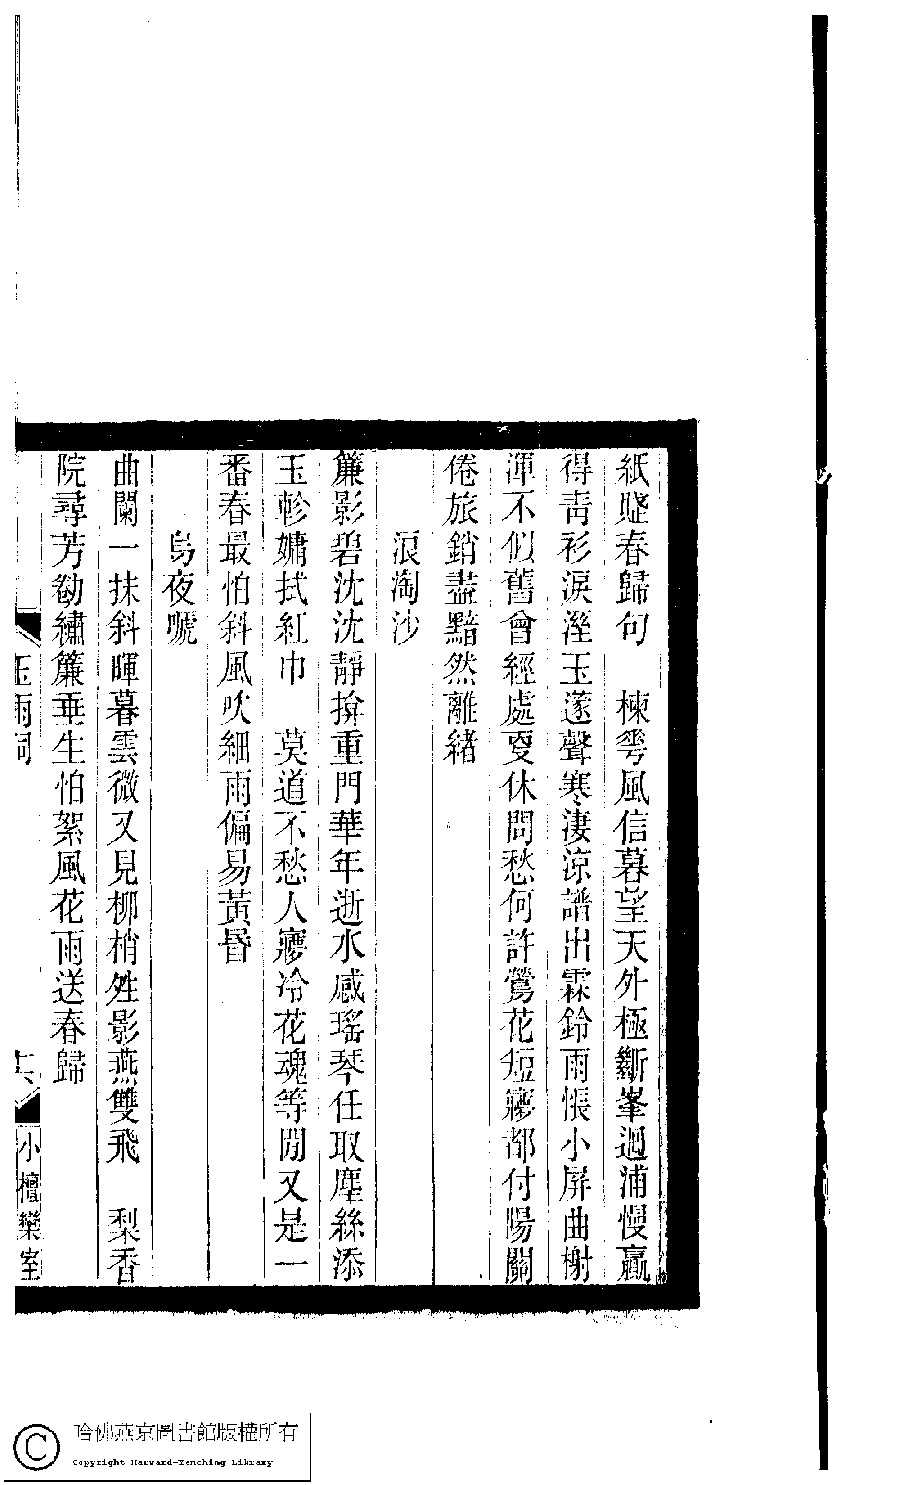 紙贬春歸句　楝蕚風信暮望天外極斷峯迴浦慢贏
得青衫淚溼玉邃聲寒淒涼譜出霖鈴雨悵小屏曲榭
渾不似舊曾經處夏休問愁何許鶯花短寢都付陽關
倦旅銷盡黯然離緒
浪淘沙
簾影碧沈沈靜揜重門華年逝水感瑤琴任取塵絲添
玉軫嬾拭紅巾　莫道不愁人寢冷花魂等閒又是一
番春最怕斜風吹細雨偏易黃昏
烏夜嗁
曲闌一抹斜暉暮雲微又見柳梢𡖖影燕雙飛　梨香
院尋芳勌繡簾垂生怕絮風花雨送春歸
玉雨詞
十六
小檀欒室
哈佛燕京圖書館版權所有
Copyright Harvard-Yenching Library